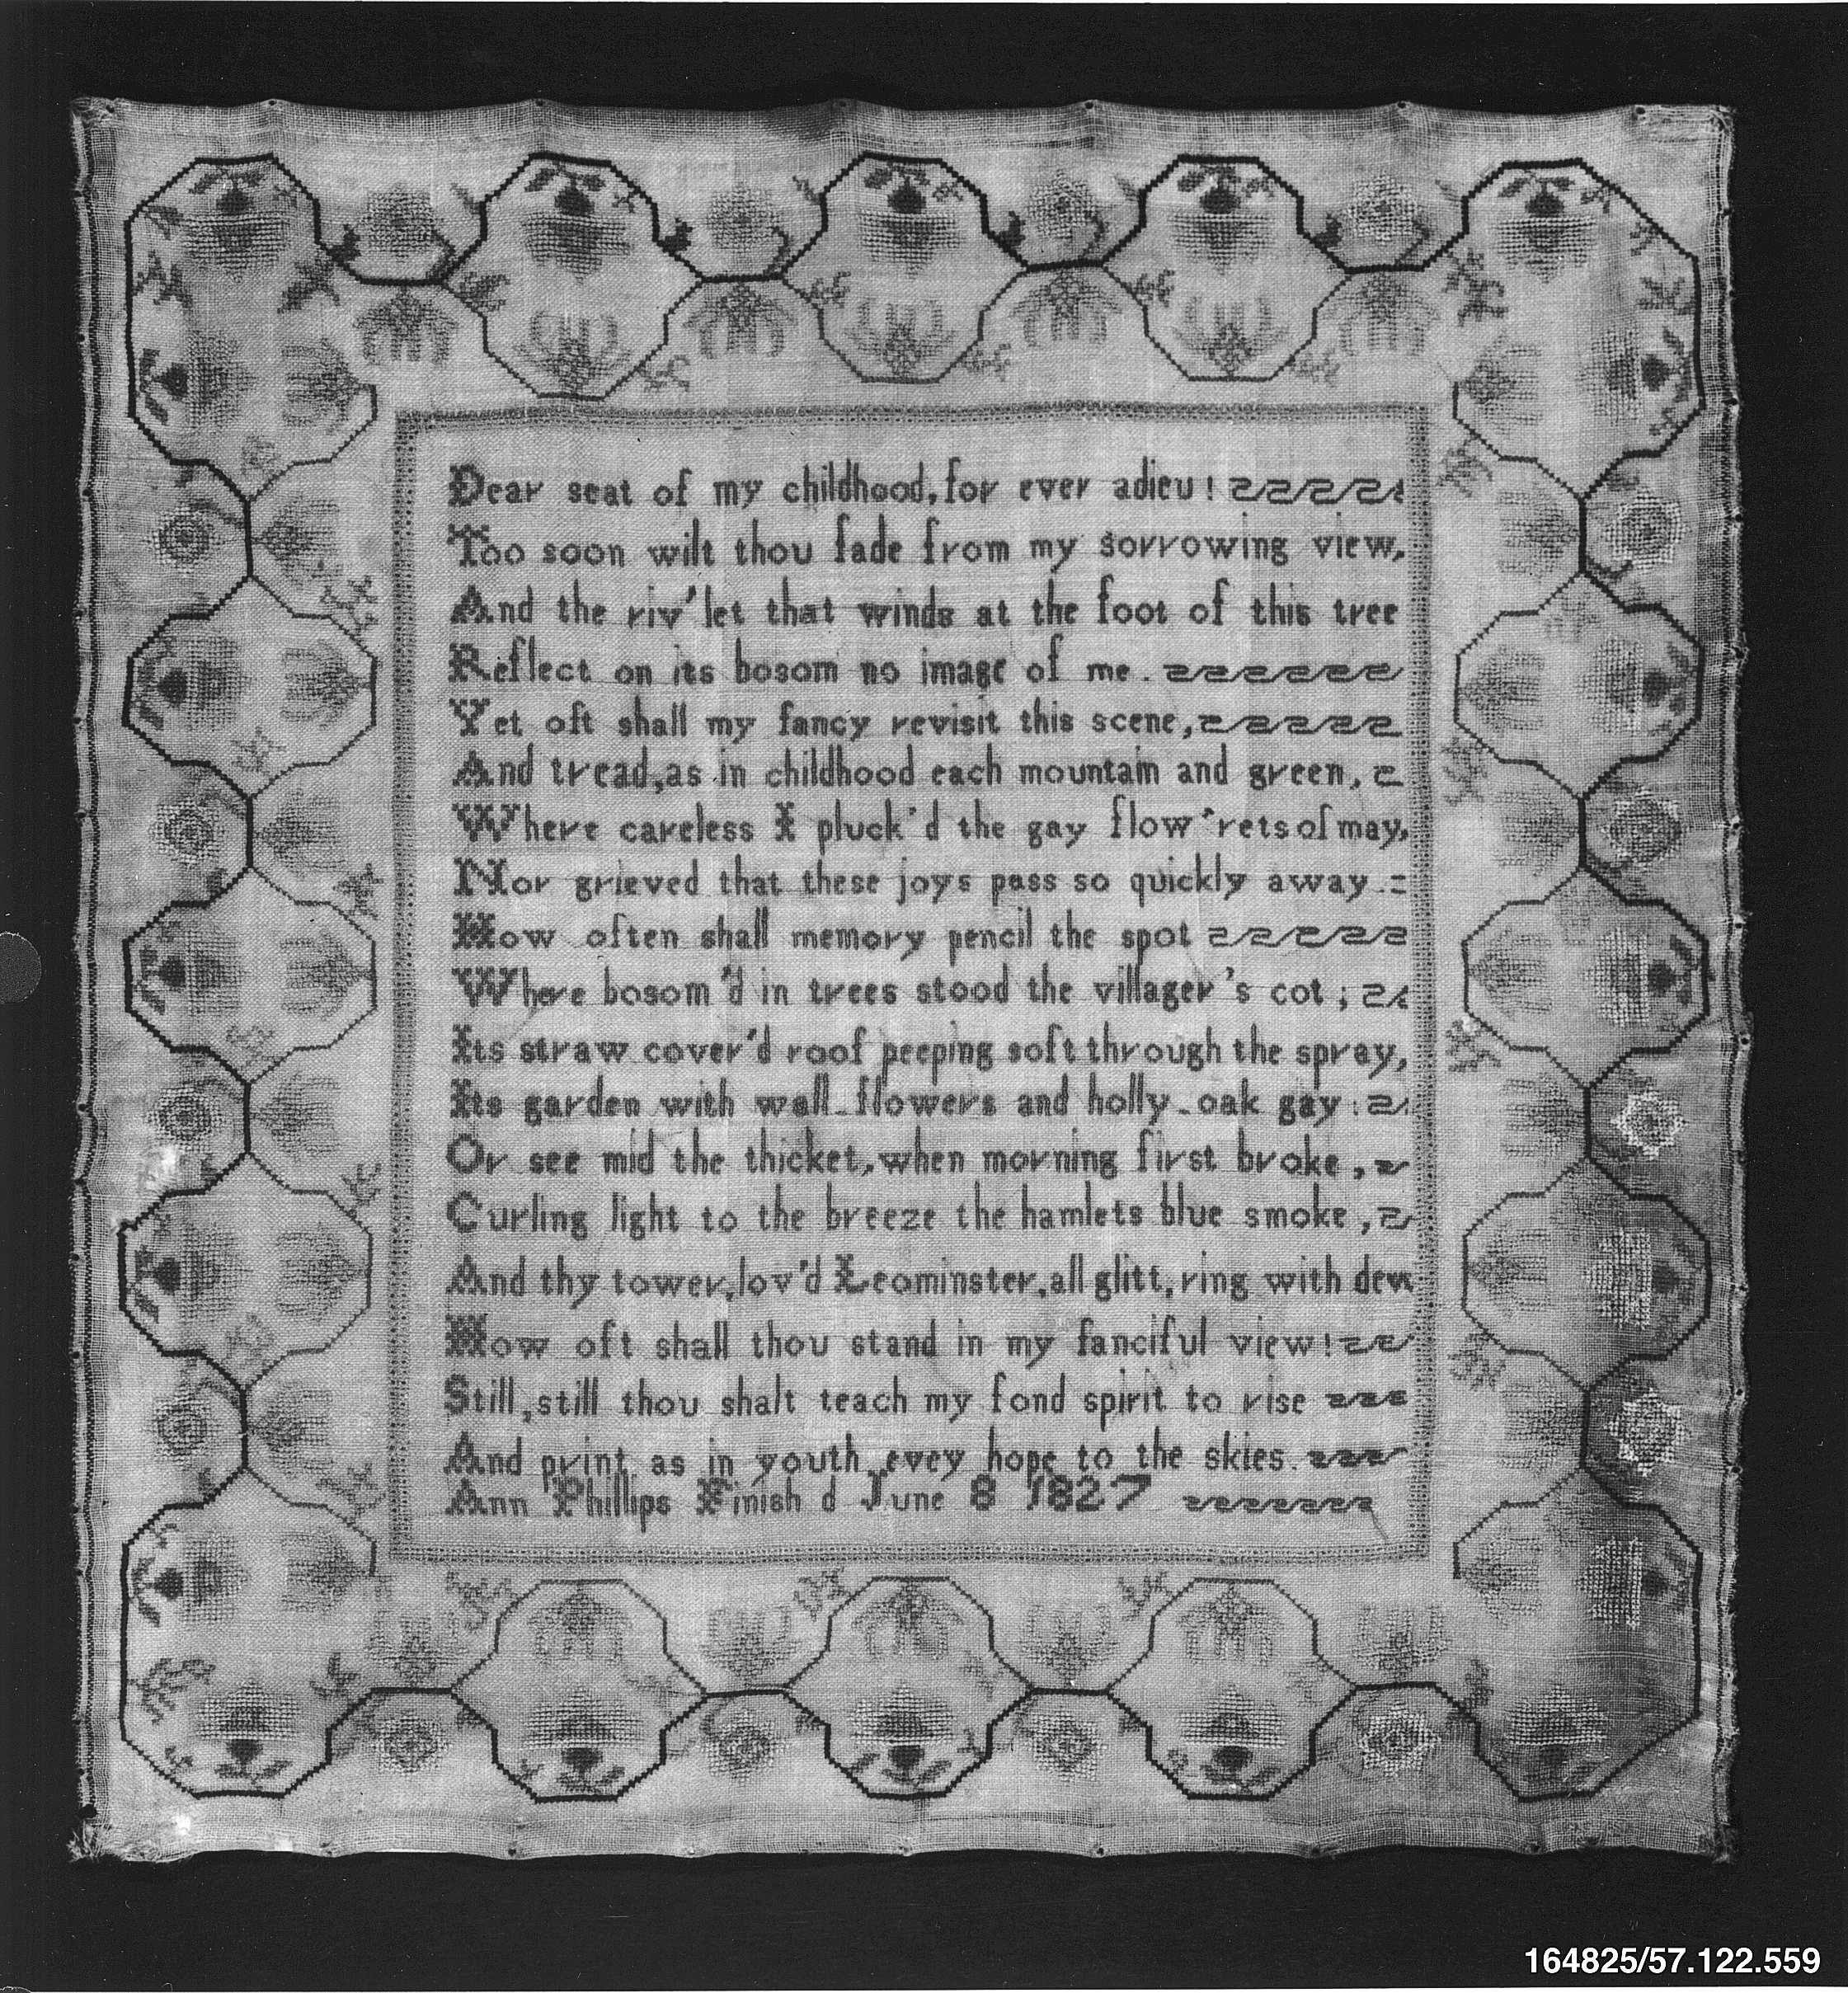 Dear seat of my childhood, for ever adieu!
Too soon wilt thou fade from my sorrowing view,
And the riv'let that winds at the foot of this tree
Reflect on its bosom no image of me.
Yet oft shall my fancy revisit this scene,
And tread, as in childhood each mountain and green,
Where careless I pluck'd the gay flow'rets of may,
Nor grieved that these joys pass so quickly away.
How often shall memory pencil the spot
Where bosom'd in trees stood the villager's cot;
Its straw cover'd roof peeping soft through the spray,
Its garden with wall-flowers and holly-oak gay:
Or see mid the thicket, when morning first broke,
Curling light to the breeze the hamlets blue smoke,
And thy tower, lov'd Leominster, all glitt,ring with dew
How oft shall thou stand in my fanciful view!
Still, still thou shalt teach my fond spirit to rise
And print as in youth evey hope to the skies.
Ann Phillips Finish d June 8 1827
164825/57.122.559